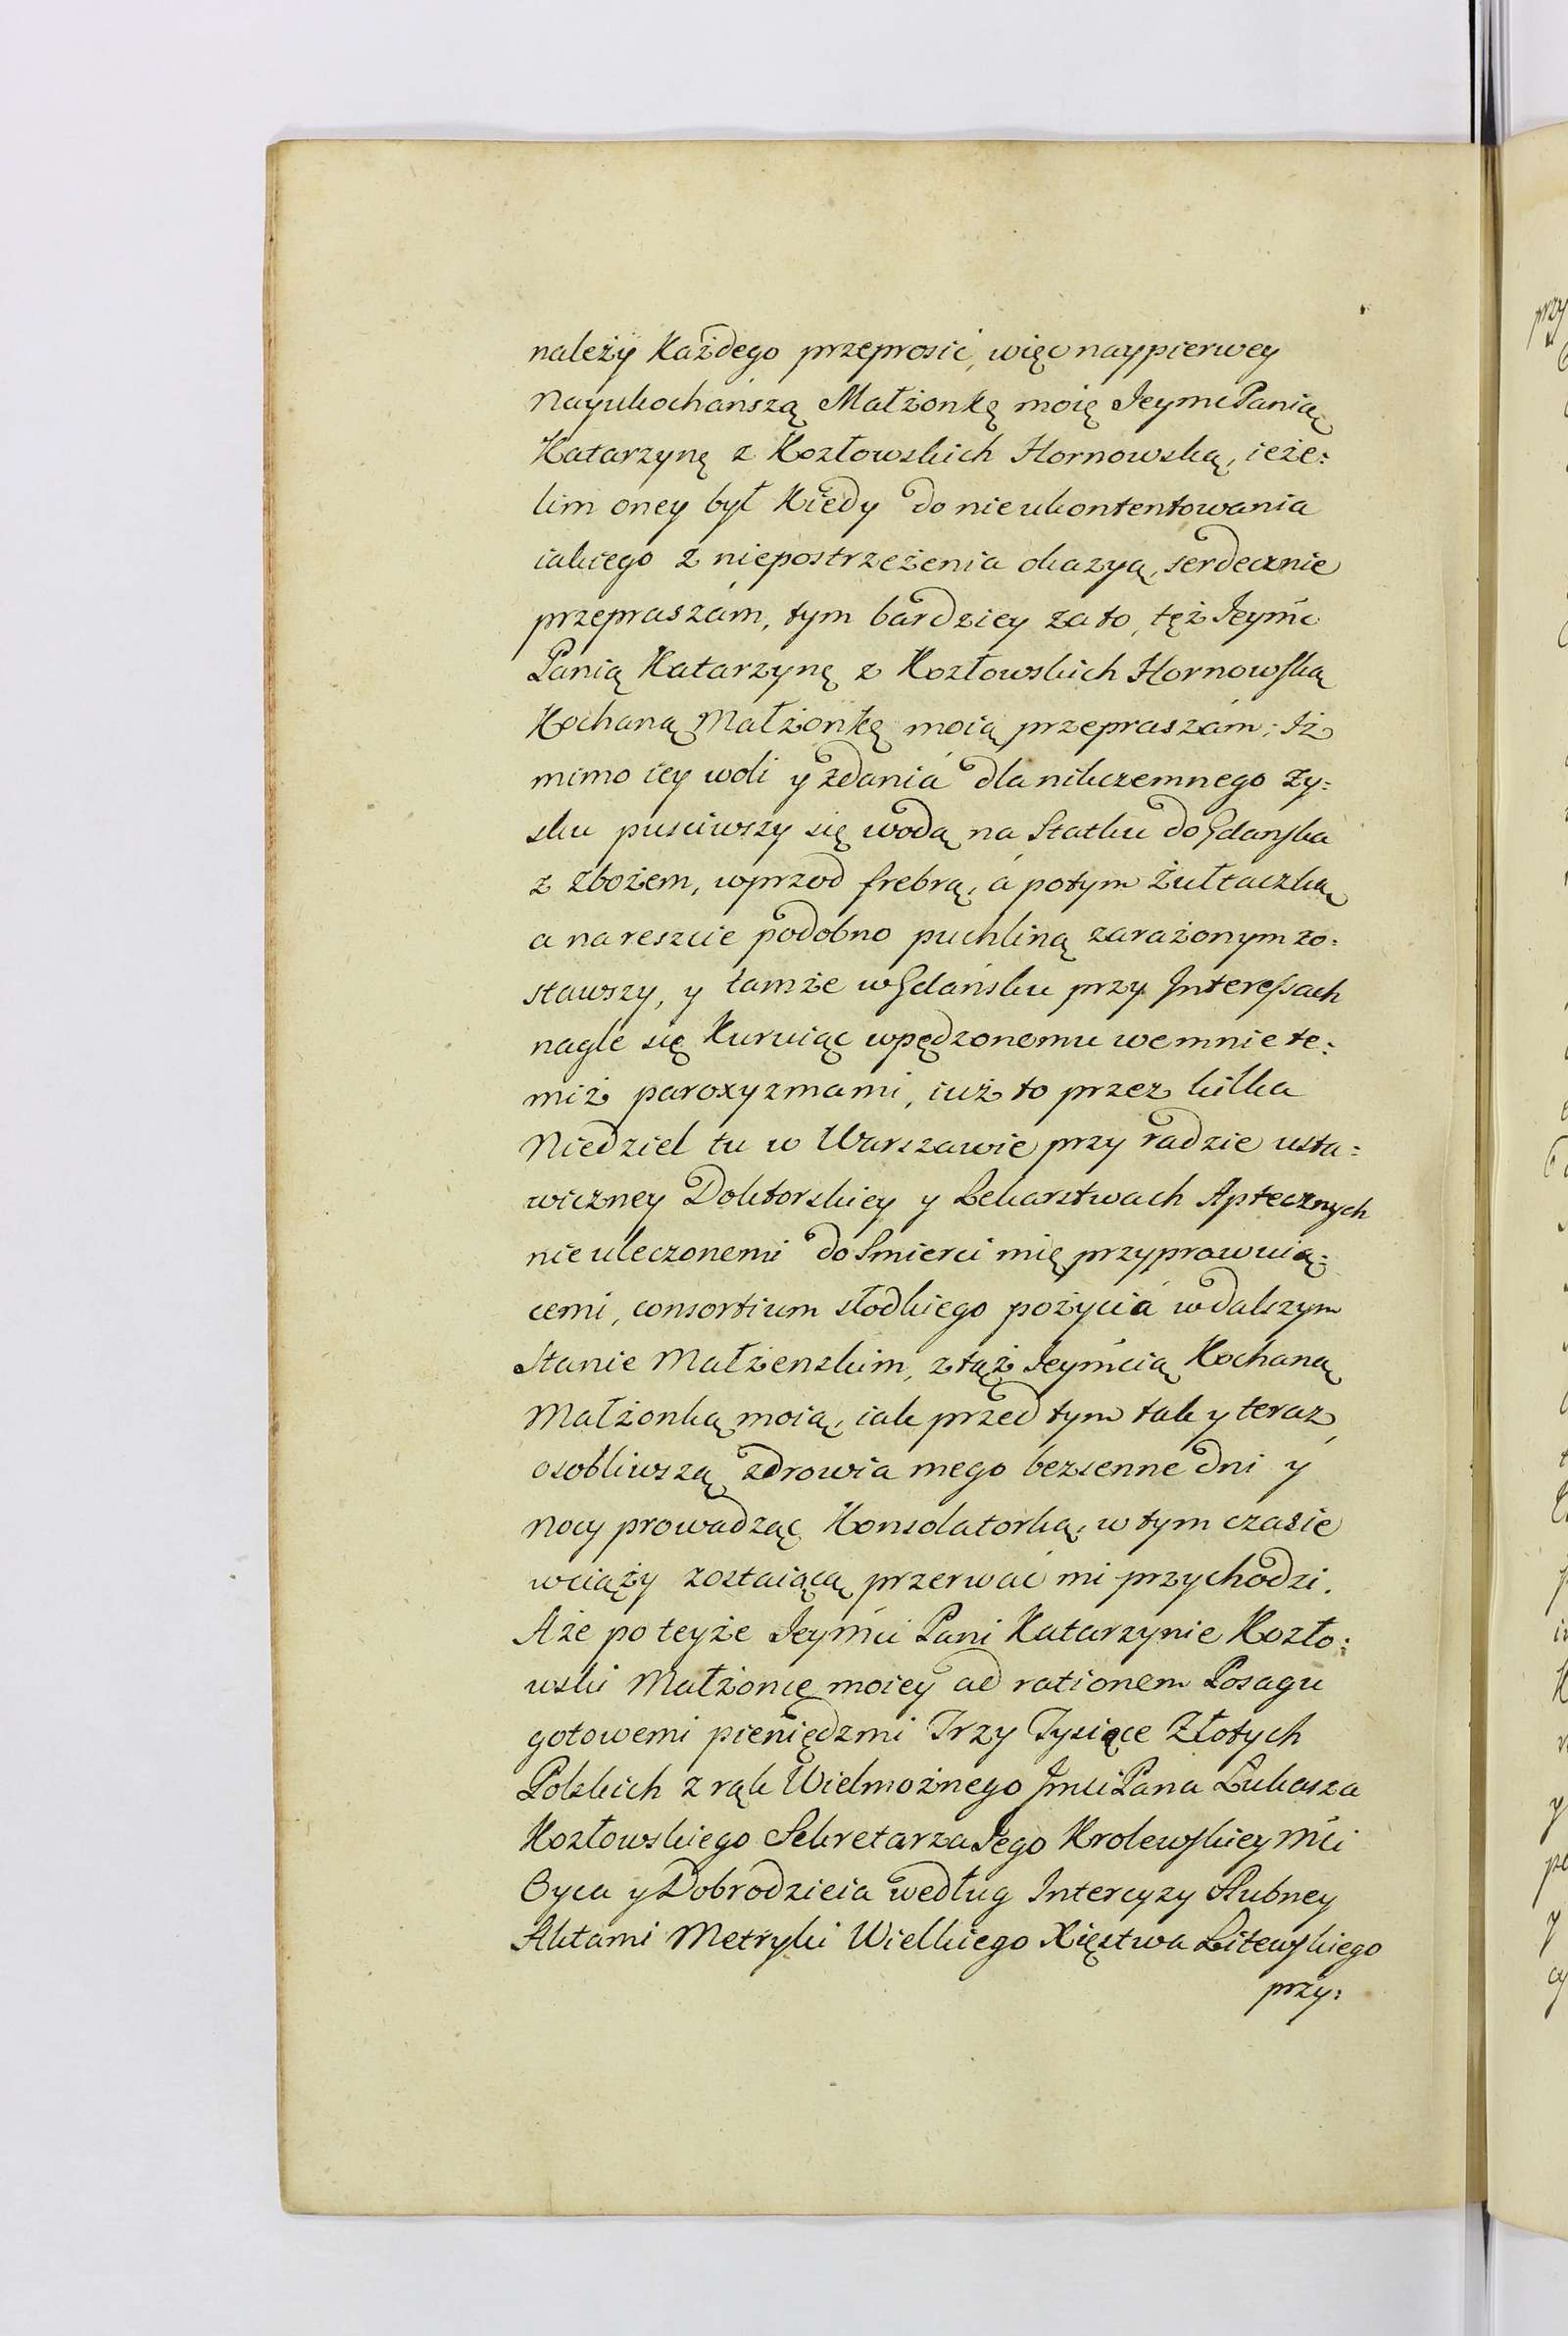 należÿ Każdego przeprosić, więc naypierwey
Nayukochańszą Małżonkę moię JeymcPanią
Katarzynę z Kozłowskich Hornowską, ieże:
lim oney był Kiedy do nieukontentowania
iakiego z niepostrzeżenia okazyą, serdecznie
przepraszám, tym bardziey za to, tęż Jeymć
Panią Katarzynę z Kozłowskich Hornowską
Kochaną Małżonkę moią przepraszám; Iż
mimo iey woli y zdaniá dla nikczemnego zy:
sku pusciwszy się wodą na Statku do Gdańska
z zbożem, wprzod frebrą, á potym Żułtaczką
a nareszcie podobno puchliną zarażonym zo:
stawszy, y tamże w Gdańsku przy Interessach
nagle się Kuruiąc wpędzonemu wemnie te:
miż paroxyzmami, iuż to przez kilka
Niedziel tu w Warszawie przy radzie usta:
wiczney Doktorskiey y Lekarstwach Aptecznych
nieuleczonemi do Smierci mię przyprawuią:
cemi, consortium słodkiego pożyciá w dalszym
Stanie Małżenskim, z tąż Jeymcią Kochaną
Małżonką moią, iak przed tym tak y teraz,
osobliwszą zdrowia mego bezsenne dni y
nocy prowadząc Konsolatorką, w tym czasie
wciąży zostaiącą przerwać mi przychodzi.
Aże po teyże Jeymci Pani Katarzynie Kozło:
wski Małżonce moiey ad rationem Posagu
gotowemi pieniędzmi Trzy Tysiące Złotych
Polskich z rąk Wielmożnego Jmci Pana Łukasza
Kozłowskiego Sekretarza Jego Krolewskiey Mci
Oyca y Dobrodzieia według Intercyzy Slubney
Aktami Metryki Wielkiego Xięstwa Litewskiego
przy: